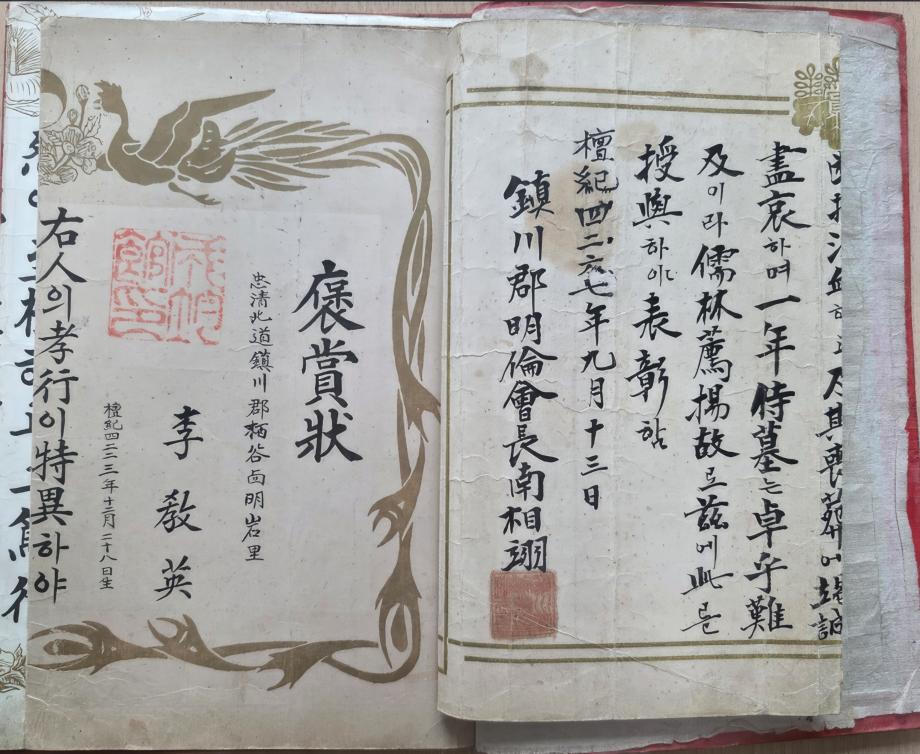 褒賞狀
忠清北道鎮川郡栢谷面明岩里
李敎英
檀紀四二二三年十二月二十八日生
成均館印
右人의孝行이特異하야
及其喪葬에竭誠
盡哀하며一年侍墓는卓乎難
及이라儒林薦揚故로茲에此를
授與하야表彰함
檀紀四二 七年九月十三日
鎮川郡明倫會長南相翊